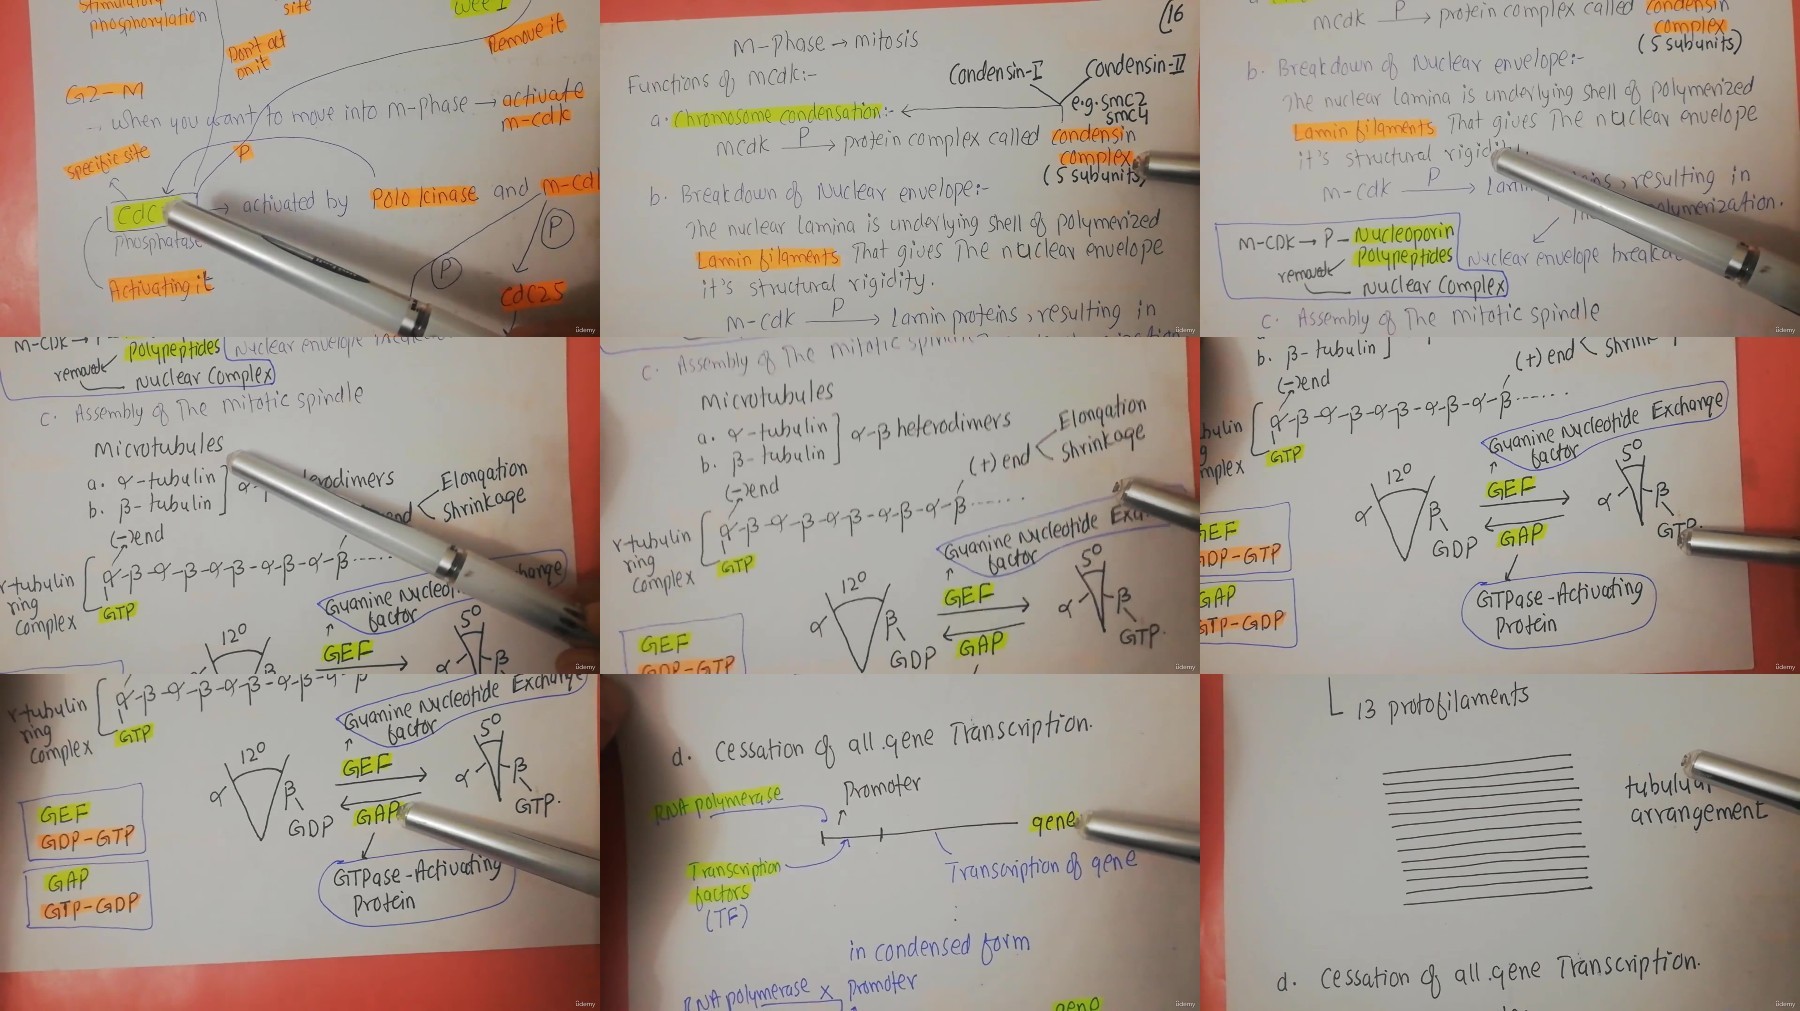 Stimulatory
phosphorylation
site
Wee 1
Don't act
on it
Remove it
G2-M
when you want to move into m-phase → activate
m-cdk
specific site
P
Cdc
→ activated by Polo kinase and m-cdk
phosphatase
P
P
Activating it
Cdc25
ûdemy
16
M-Phase → mitosis
Functions of mcdk:-
Condensin-I
Condensin-II
a. Chromosome condensation:-
e.g. smc2
smc4
mcdk P→ protein complex called condensin
complex
(5 subunits)
b. Breakdown of Nuclear envelope:-
The nuclear lamina is underlying shell of polymerized
Lamin filaments That gives The nuclear envelope
it's structural rigidity.
m-cdk P→ Lamin proteins, resulting in
ûdemy
mcdk P→ protein complex called condensin
complex
(5 subunits)
b. Breakdown of Nuclear envelope:-
The nuclear lamina is underlying shell of polymerized
Lamin filaments That gives The nuclear envelope
it's structural rigidity.
m-cdk P→ Lamin proteins, resulting in
M-CDK → P - Nucleoporin
Polypeptides
remove
Nuclear Complex
Nuclear envelope
c. Assembly of The mitotic spindle
ûdemy
M-CDK → P
Polypeptides
remove
Nuclear Complex
c. Assembly of The mitotic spindle
Microtubules
a. α-tubulin
b. β-tubulin
Elongation
Shrinkage
(-)end
r-tubulin
ring
complex
α-β-α-β-α-β-α-β-α-β......
GTP
Guanine Nucleotide Exchange
factor
12°
GEF
5°
α
β
ûdemy
c. Assembly of The mitotic spindle
Microtubules
a. α-tubulin
b. β-tubulin
α-β heterodimers
(+) end
Elongation
Shrinkage
(-)end
r-tubulin
ring
complex
α-β-α-β-α-β-α-β-α-β......
GTP
Guanine Nucleotide Exchange
factor
12°
GEF
5°
α
β
GDP
GAP
α
β
GTP.
GEF
GDP-GTP
ûdemy
b. β-tubulin
(+) end
Shrink
(-)end
α-β-α-β-α-β-α-β-α-β......
GTP
Guanine Nucleotide Exchange
factor
12°
GEF
5°
α
β
GDP
GAP
α
β
GTP
GEF
GDP-GTP
GAP
GTP-GDP
GTPase-Activating
Protein
ûdemy
r-tubulin
ring
complex
α-β-α-β-α-β-α-β-α-β
GTP
Guanine Nucleotide Exchange
factor
12°
GEF
5°
α
β
GDP
GAP
α
β
GTP.
GEF
GDP-GTP
GAP
GTP-GDP
GTPase-Activating
Protein
ûdemy
d. Cessation of all gene Transcription.
RNA polymerase
Promoter
gene
Transcription
factors
(TF)
Transcription of gene
in condensed form
RNA polymerase x Promoter
gene
ûdemy
13 protofilaments
tubulular
arrangement
d. Cessation of all gene Transcription.
ûdemy